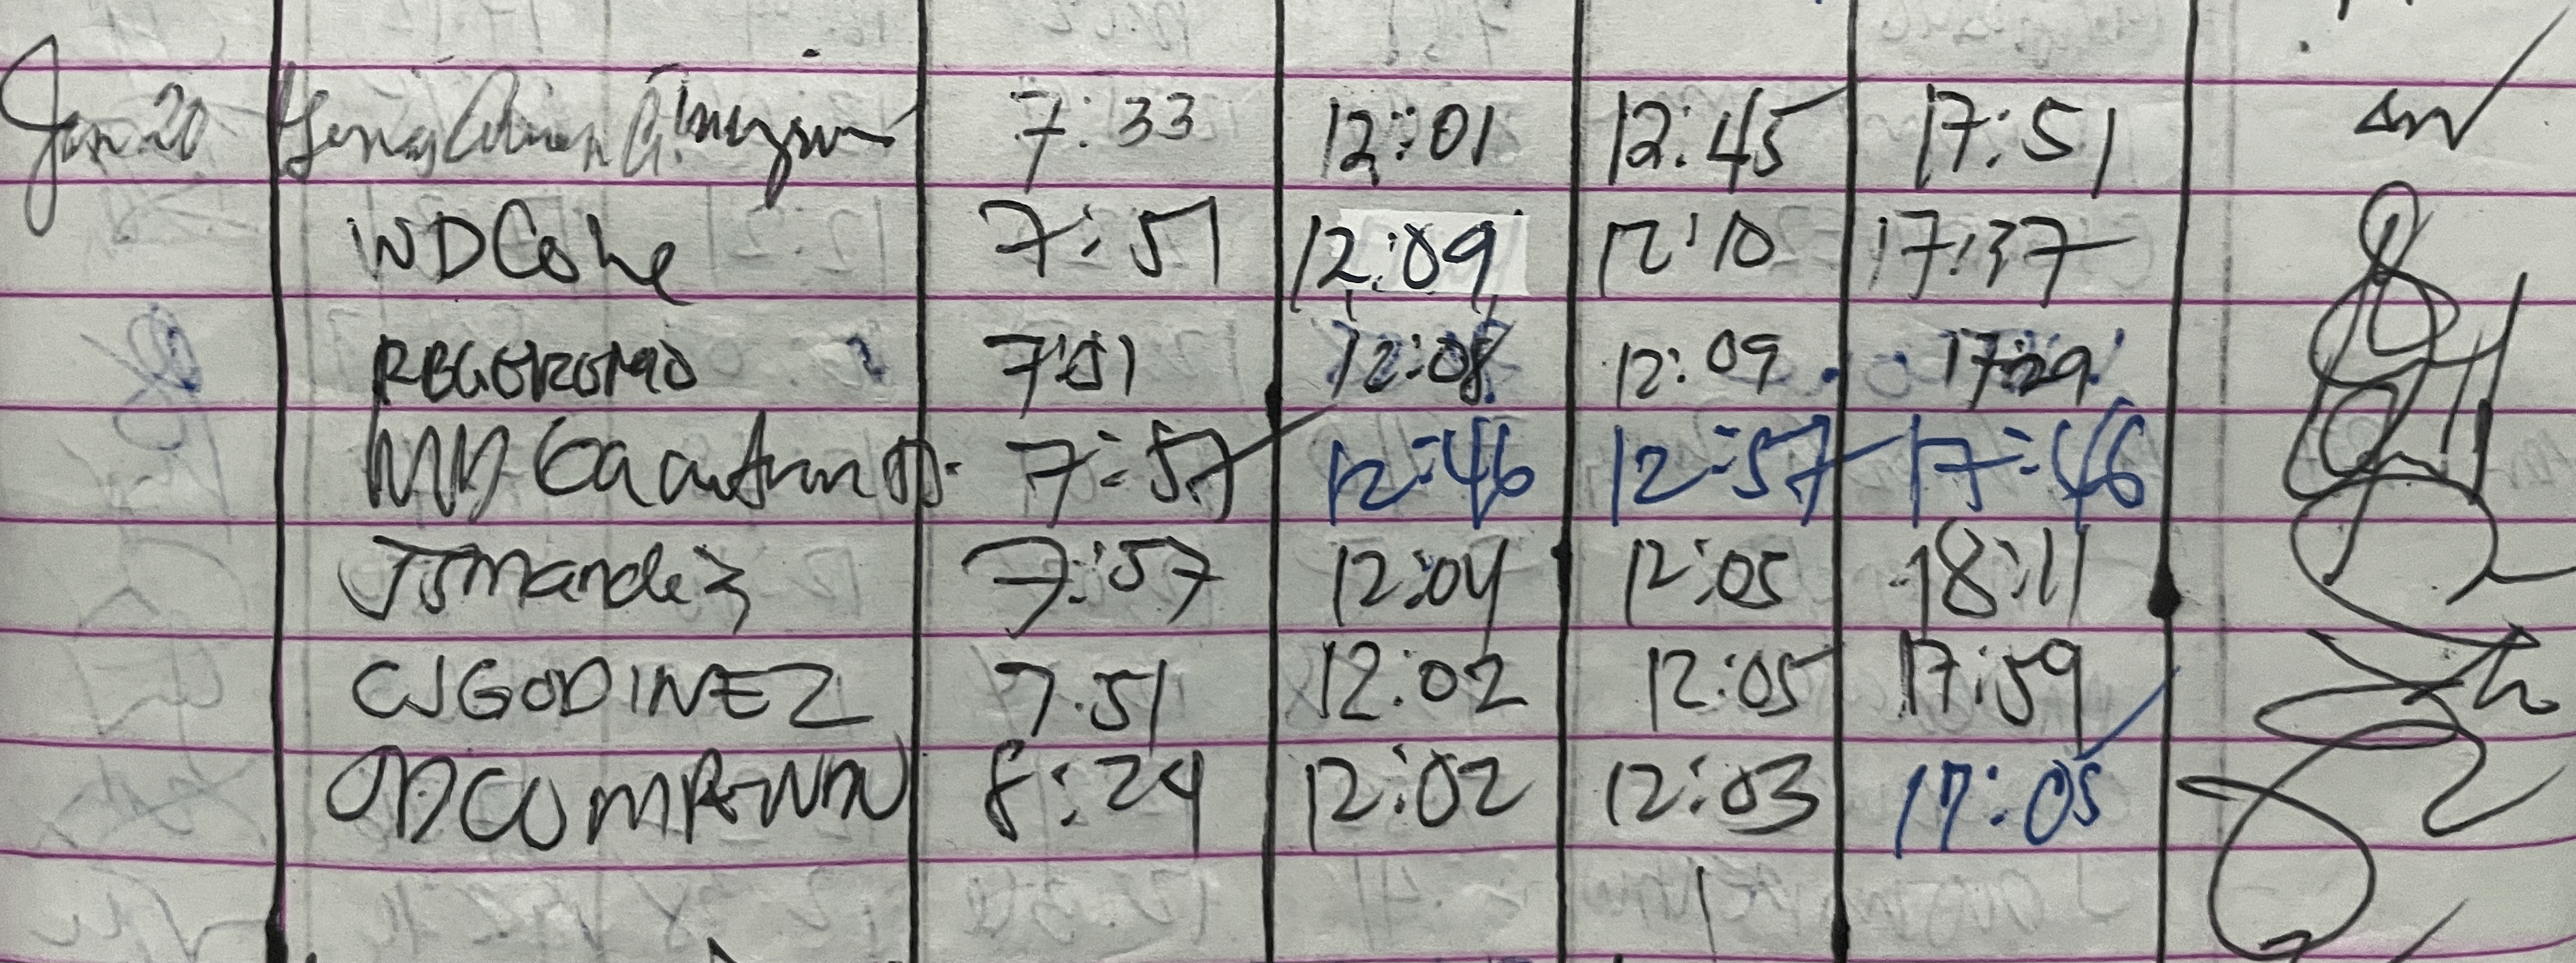 Jan 20 7:33 12:01 12:45 17:51
WD Cohe 7:51 12:09 12:10 17:37
RBGERONO 7:51 12:08 12:09 17:29
MD 7:57 12:46 12:57 17:46
JSMandez 7:57 12:04 12:05 18:11
CJGODINEZ 7.51 12:02 12:05 17:59
8:24 12:02 12:03 17:05